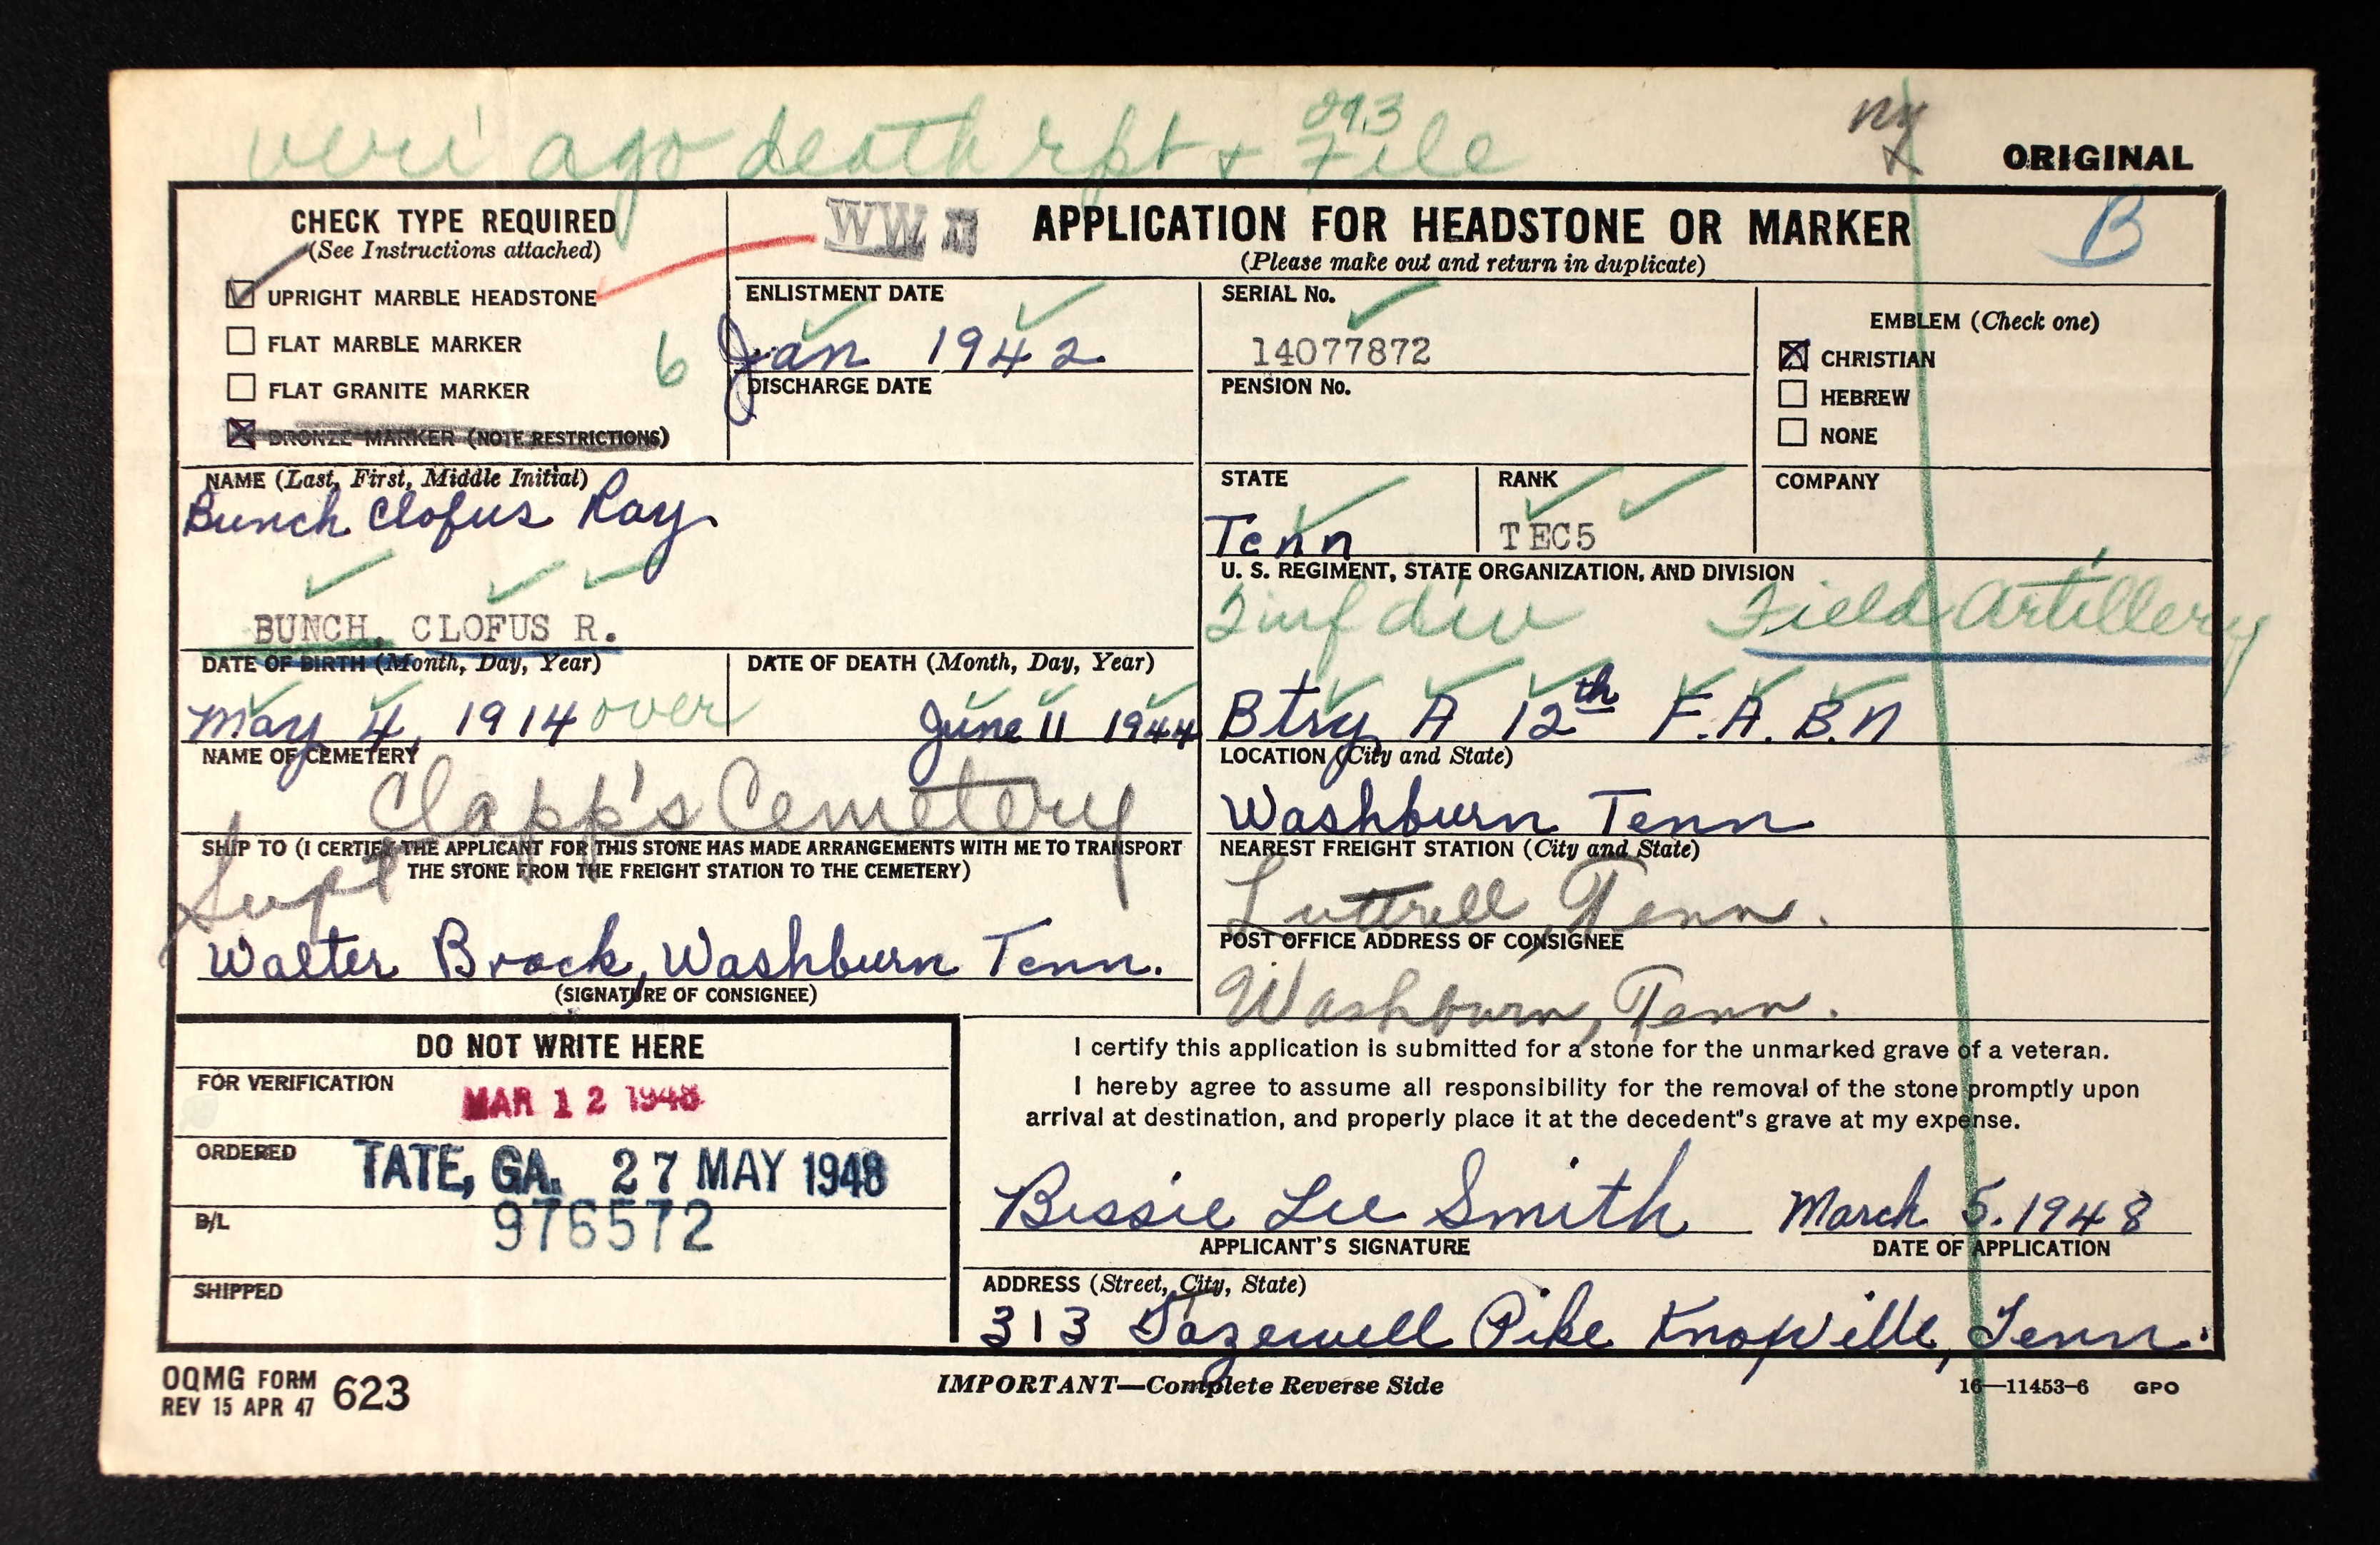 veri ago death rpt + File
293
ORIGINAL
CHECK TYPE REQUIRED
(See Instructions attached)
UPRIGHT MARBLE HEADSTONE
FLAT MARBLE MARKER
FLAT GRANITE MARKER
BRONZE MARKER (NOTE RESTRICTIONS)
6
WW II
APPLICATION FOR HEADSTONE OR MARKER
(Please make out and return in duplicate)
B
ENLISTMENT DATE
Jan 1942
DISCHARGE DATE
SERIAL No.
14077872
PENSION No.
EMBLEM (Check one)
CHRISTIAN
HEBREW
NONE
NAME (Last, First, Middle Initial)
Bunch Clofus Ray
BUNCH, CLOFUS R.
STATE
Tenn
RANK
TEC5
COMPANY
U. S. REGIMENT, STATE ORGANIZATION, AND DIVISION
2 inf div Field Artillery
Btry A 12th F.A. B.N
DATE OF BIRTH (Month, Day, Year)
May 4, 1914 over
DATE OF DEATH (Month, Day, Year)
June 11 1944
NAME OF CEMETERY
Clapp's Cemetery
LOCATION (City and State)
Washburn Tenn
SHIP TO (I CERTIFY THE APPLICANT FOR THIS STONE HAS MADE ARRANGEMENTS WITH ME TO TRANSPORT
THE STONE FROM THE FREIGHT STATION TO THE CEMETERY)
Supt
Walter Brock, Washburn Tenn.
(SIGNATURE OF CONSIGNEE)
NEAREST FREIGHT STATION (City and State)
Luttrell, Tenn.
POST OFFICE ADDRESS OF CONSIGNEE
Washburn, Tenn.
DO NOT WRITE HERE
FOR VERIFICATION
MAR 12 1948
ORDERED
TATE, GA. 27 MAY 1948
B/L
976572
SHIPPED
I certify this application is submitted for a stone for the unmarked grave of a veteran.
I hereby agree to assume all responsibility for the removal of the stone promptly upon
arrival at destination, and properly place it at the decedent"s grave at my expense.
Bessie Lee Smith March 5. 1948
APPLICANT'S SIGNATURE
DATE OF APPLICATION
ADDRESS (Street, City, State)
313 Tazewell Pike Knoxville, Tenn.
OQMG FORM 623
REV 15 APR 47
IMPORTANT—Complete Reverse Side
16—11453-6 GPO